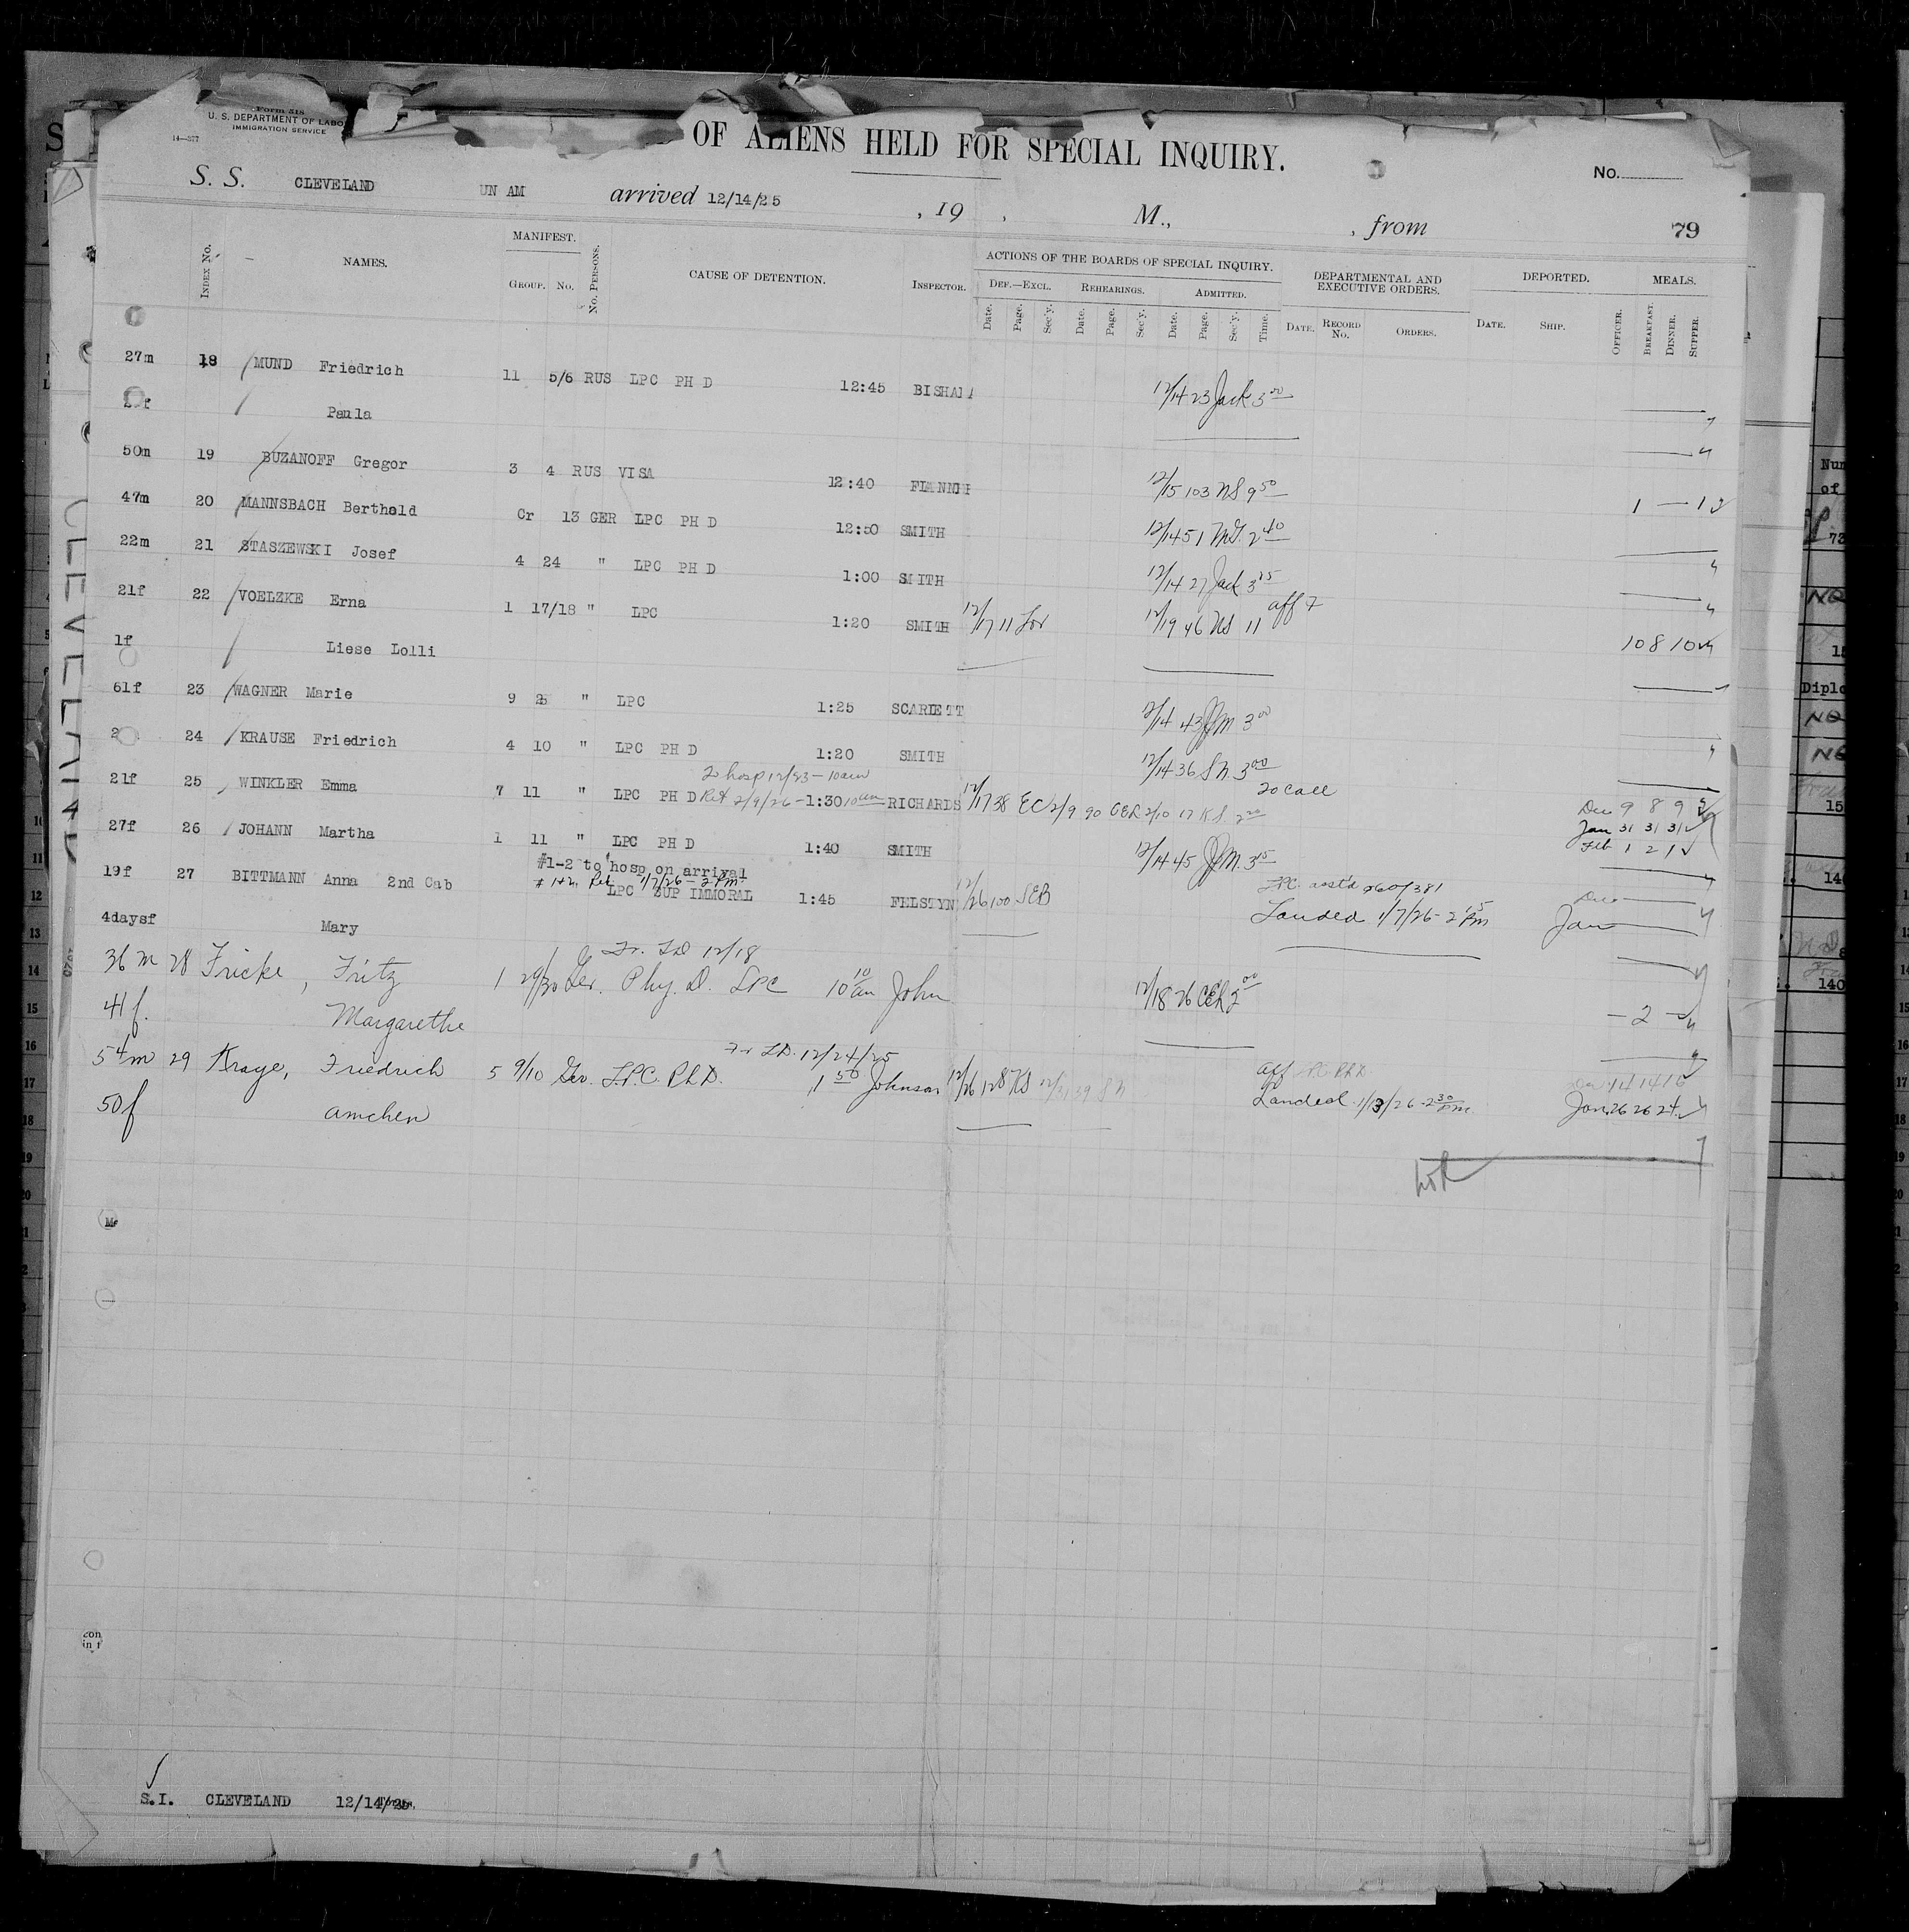 Form 518
U. S. DEPARTMENT OF LABO
IMMIGRATION SERVICE
14—377
OF ALIENS HELD FOR SPECIAL INQUIRY.
No.
S. S. CLEVELAND UN AM arrived 12/14/25 , 19 , M., , from
79
INDEX No. NAMES. MANIFEST. GROUP. No. No. PERSONS. CAUSE OF DETENTION. INSPECTOR.
ACTIONS OF THE BOARDS OF SPECIAL INQUIRY. DEF.—EXCL. REHEARINGS. ADMITTED.
Date. Page. Sec'y. Date. Page. Sec'y. Date. Page. Sec'y. Time.
DEPARTMENTAL AND EXECUTIVE ORDERS. DATE. RECORD No. ORDERS.
DEPORTED. DATE. SHIP. OFFICER.
MEALS. BREAKFAST. DINNER. SUPPER.
27m 18 MUND Friedrich 11 5/6 RUS LPC PH D 12:45 12/14 23 Jack 3 00
f Paula
50m 19 BUZANOFF Gregor 3 4 RUS VISA 12:40 12/15 103 NS 9 50 1 — 1
47m 20 MANNSBACH Berthold Cr 13 GER LPC PH D 12:50 SMITH 12/14 51 2 40
22m 21 STASZEWSKI Josef 4 24 " LPC PH D 1:00 SMITH 12/14 27 Jack 3 25
21f 22 VOELZKE Erna 1 17/18 " LPC 1:20 SMITH 12/17 11 12/19 46 NS 11 10 8 10
1f Liese Lolli
61f 23 WAGNER Marie 9 " LPC 1:25 SCARLETT 12/14 43 JJM 3 00
24 KRAUSE Friedrich 4 10 " LPC PH D 1:20 SMITH 12/14 36 SN 3 00
To hosp 12/23 – 10am
to call
21f 25 WINKLER Emma 7 11 " LPC PH D Ret 2/9/26 – 1:30 10am RICHARDS 12/17 38 EC 2/9 90 CER 2/10 17 KS 2 20 Dec 9 8 9
Jan 31 31 31
Feb 1 2 1
27f 26 JOHANN Martha 1 11 " LPC PH D 1:40 SMITH 12/14 45 JJM 3 15
#1-2 to hosp on arrival
#1+2 Ret 1/7/26 – 2 PM
19f 27 BITTMANN Anna 2nd Cab LPC SUP IMMORAL 1:45 FELSTYN 12/26 100 SEB Dec
Landed 1/7/26 - 2 15 Pm Jan
4daysf Mary
Fr. TD 12/18
36 m 28 Fricke, Fritz 1 29/30 Ger. Phy. D. LPC 10 10 am John 12/18 26 CER 2 00
41 f. Margarethe – 2 –
Fr TD. 12/24/25
54 m 29 Kraye, Friedrich 5 9/10 Ger. L.P.C. Ph.D. 1 50 Johnson 12/26 128 KS 12/31 59 SN
Landed 1/13/26 - 2 30 pm Jan 26 26 24
50 f Amchen
CLEVELAND
S.I. CLEVELAND 12/14/25